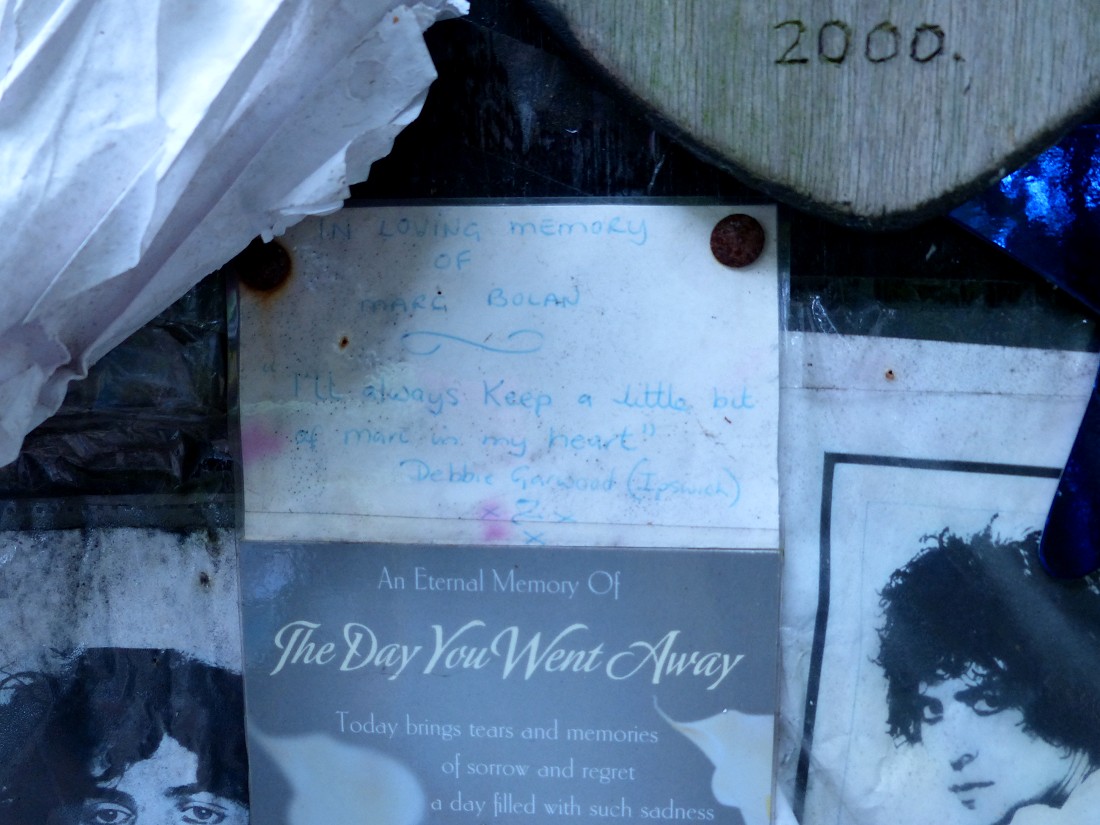 2000.
IN LOVING MEMORY
OF
MARC BOLAN
"I'll always Keep a little bit
of marc in my heart"
Debbie Garwood (Ipswich)
x 2 x
x
An Eternal Memory Of
The Day You Went Away
Today brings tears and memories
of sorrow and regret
a day filled with such sadness